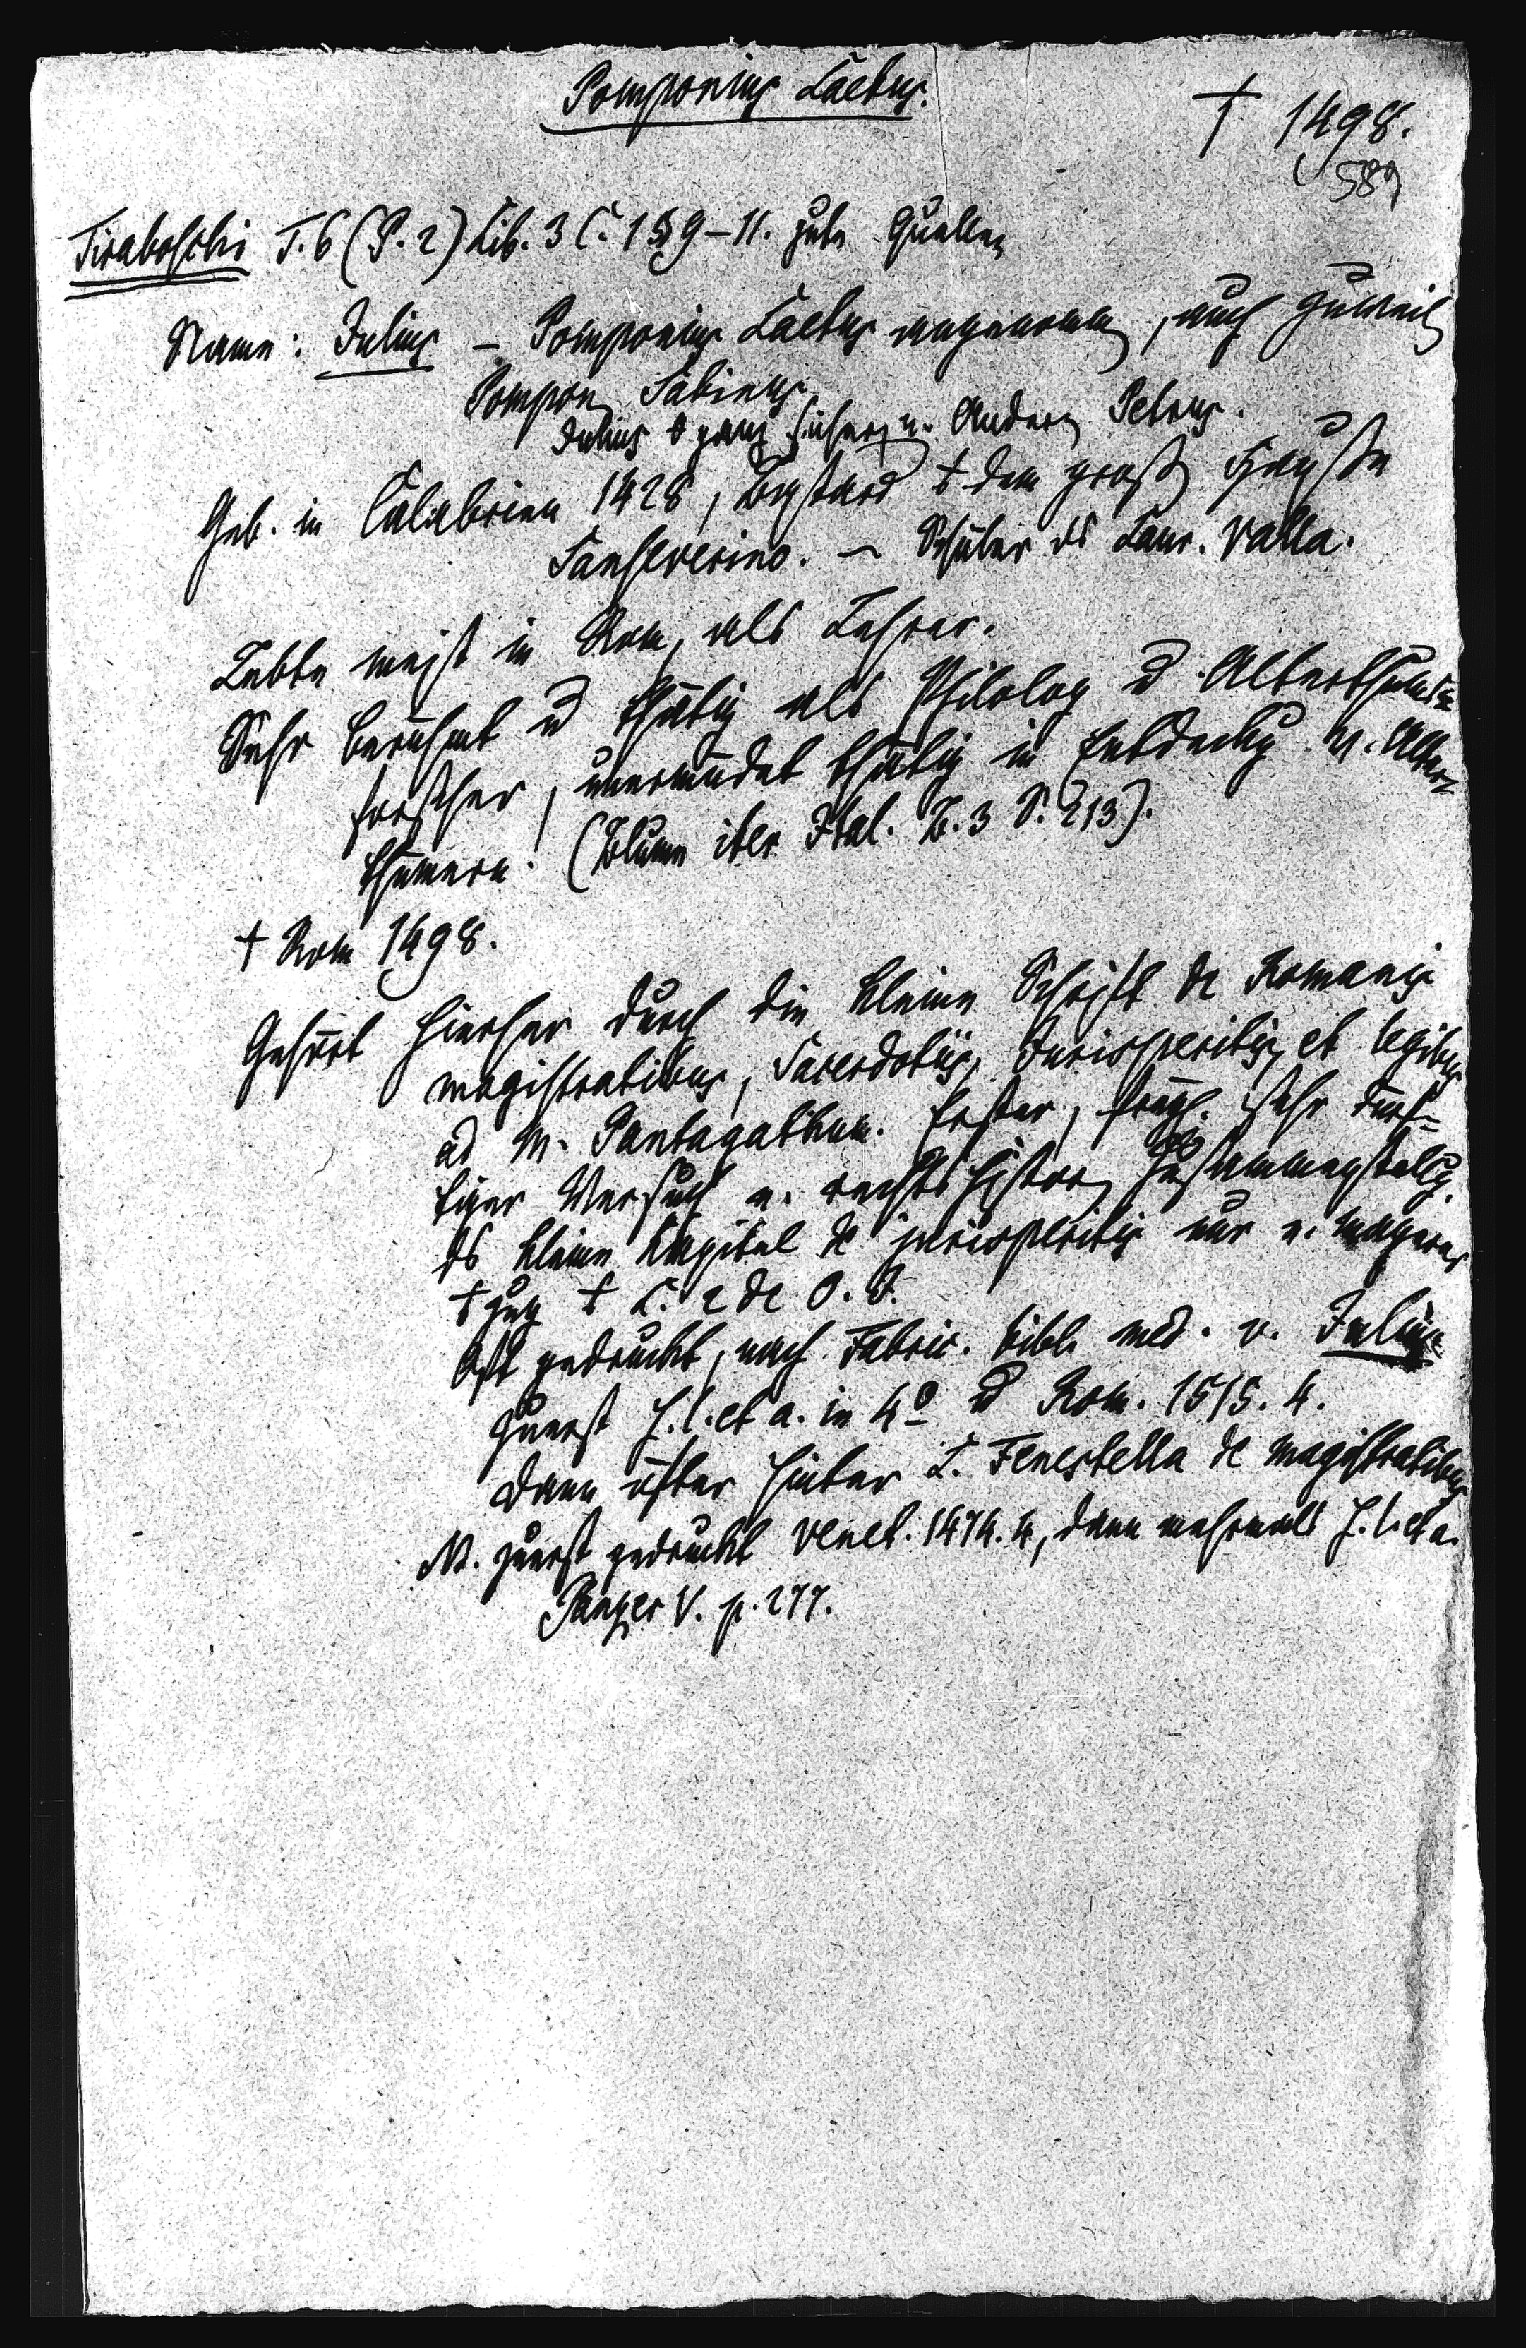 Pomponius Laetus.
† 1498.
589
Tiraboschi T. 6 (P. 2) Lib. 3 C. 1 § 9–11. gute Quellen
Name: Julius – Pomponius Laetus angenommen, auch zuweilen
Pompon. Sabinus.
Julius ganz sicher, n. Andern Petrus.
Geb. in Calabrien 1428, Bastard d. dem großen Hause
Sanseverino. – Schüler des Laur. Valla.
Lebte meist in Rom, als Lehrer.
Sehr berühmt u. thätig als Philolog u. Alterthums-
forscher, unermüdet thätig in Entdeckg v. Alter-
thümern. (Blume iter Ital. B. 3 S. 213).
† Rom 1498.
Gehört hierher durch die kleine Schrift de Romanis
magistratibus, sacerdotiis, jurisperitis, et legibus
ad M. Pantagathum. Erster, freyl. sehr dürf-
tiger Versuch e. rechtshistor. Zusammenstellg.
das kleine Kapitel de jurisperitis nur e. magerer
L. 2 de O. J.
Oft gedruckt, nach Fabric. bibl. med. v. Julius
zuerst s. l. et a. in 4° u. Rom. 1515. 4.
dann öfter hinter L. Fenestella de magistratibus
NB. zuerst gedruckt Venet. 1474. 4, dann mehrmals s. l. et a.
Panzer V. p. 277.